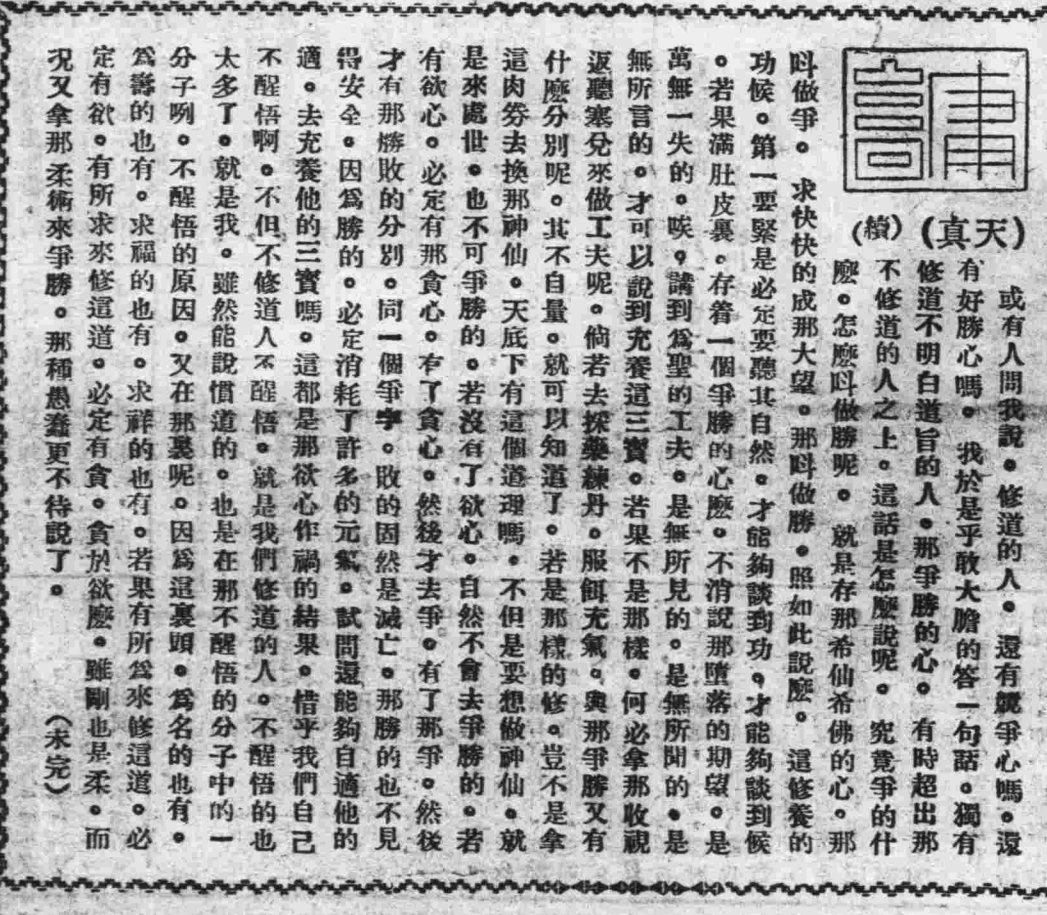 庸言
(天真)(續)
或有人問我說。修道的人。還有競爭心嗎。還
有好勝心嗎。我於是乎敢大膽的答一句話。獨有
修道不明白道旨的人。那爭勝的心。有時超出那
不修道的人之上。這話是怎麽說呢。究竟爭的什
麽。怎麽呌做勝呢。就是存那希仙希佛的心。那
呌做爭。求快快的成那大望。那呌做勝。照如此說麽。這修養的
功候。第一要緊是必定要聽其自然。才能夠談到功。才能夠談到候
。若果滿肚皮裏。存着一個爭勝的心麽。不消說那墮落的期望。是
萬無一失的。唉。講到爲聖的工夫。是無所見的。是無所聞的。是
無所言的。才可以說到充養這三寶。若果不是那樣。何必拿那收視
返聽塞兌來做工夫呢。倘若去採藥練丹。服餌充氣。與那爭勝又有
什麽分別呢。其不自量。就可以知道了。若是那樣的修。豈不是拿
這肉劵去換那神仙。天底下有這個道理嗎。不但是要想做神仙。就
是來處世。也不可爭勝的。若沒有了欲心。自然不會去爭勝的。若
有欲心。必定有那貪心。有了貪心。然後才去爭。有了那爭。然後
才有那勝敗的分別。同一個爭字。敗的固然是滅亡。那勝的也不見
得安全。因爲勝的。必定消耗了許多的元氣。試問還能夠自適他的
適。去充養他的三寶嗎。這都是那欲心作禍的結果。惜乎我們自己
不醒悟啊。不但不修道人不醒悟。就是我們修道的人。不醒悟的也
太多了。就是我。雖然能說慣道的。也是在那不醒悟的分子中的一
分子咧。不醒悟的原因。又在那裏呢。因爲這裏頭。爲名的也有。
爲壽的也有。求福的也有。求祥的也有。若果有所爲來修這道。必
定有欲。有所求來修這道。必定有貪。貪於欲麽。雖剛也是柔。而
況又拿那柔術來爭勝。那種愚蠢更不待說了。
(未完)